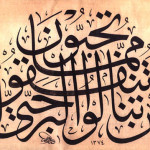 لن تنالوا البر حتى
تنفقوا مما
تحبون
١٣٧٤